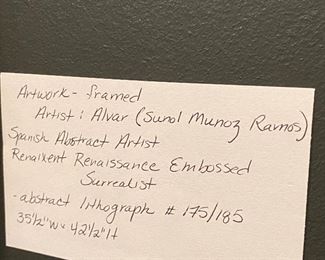 Artwork - framed
Artist : Alvar (Sunol Munoz Ramos)
Spanish Abstract Artist
Renaixent Renaissance Embossed
Surrealist
- abstract lithograph # 175/185
35 1/2" W x 42 1/2" H